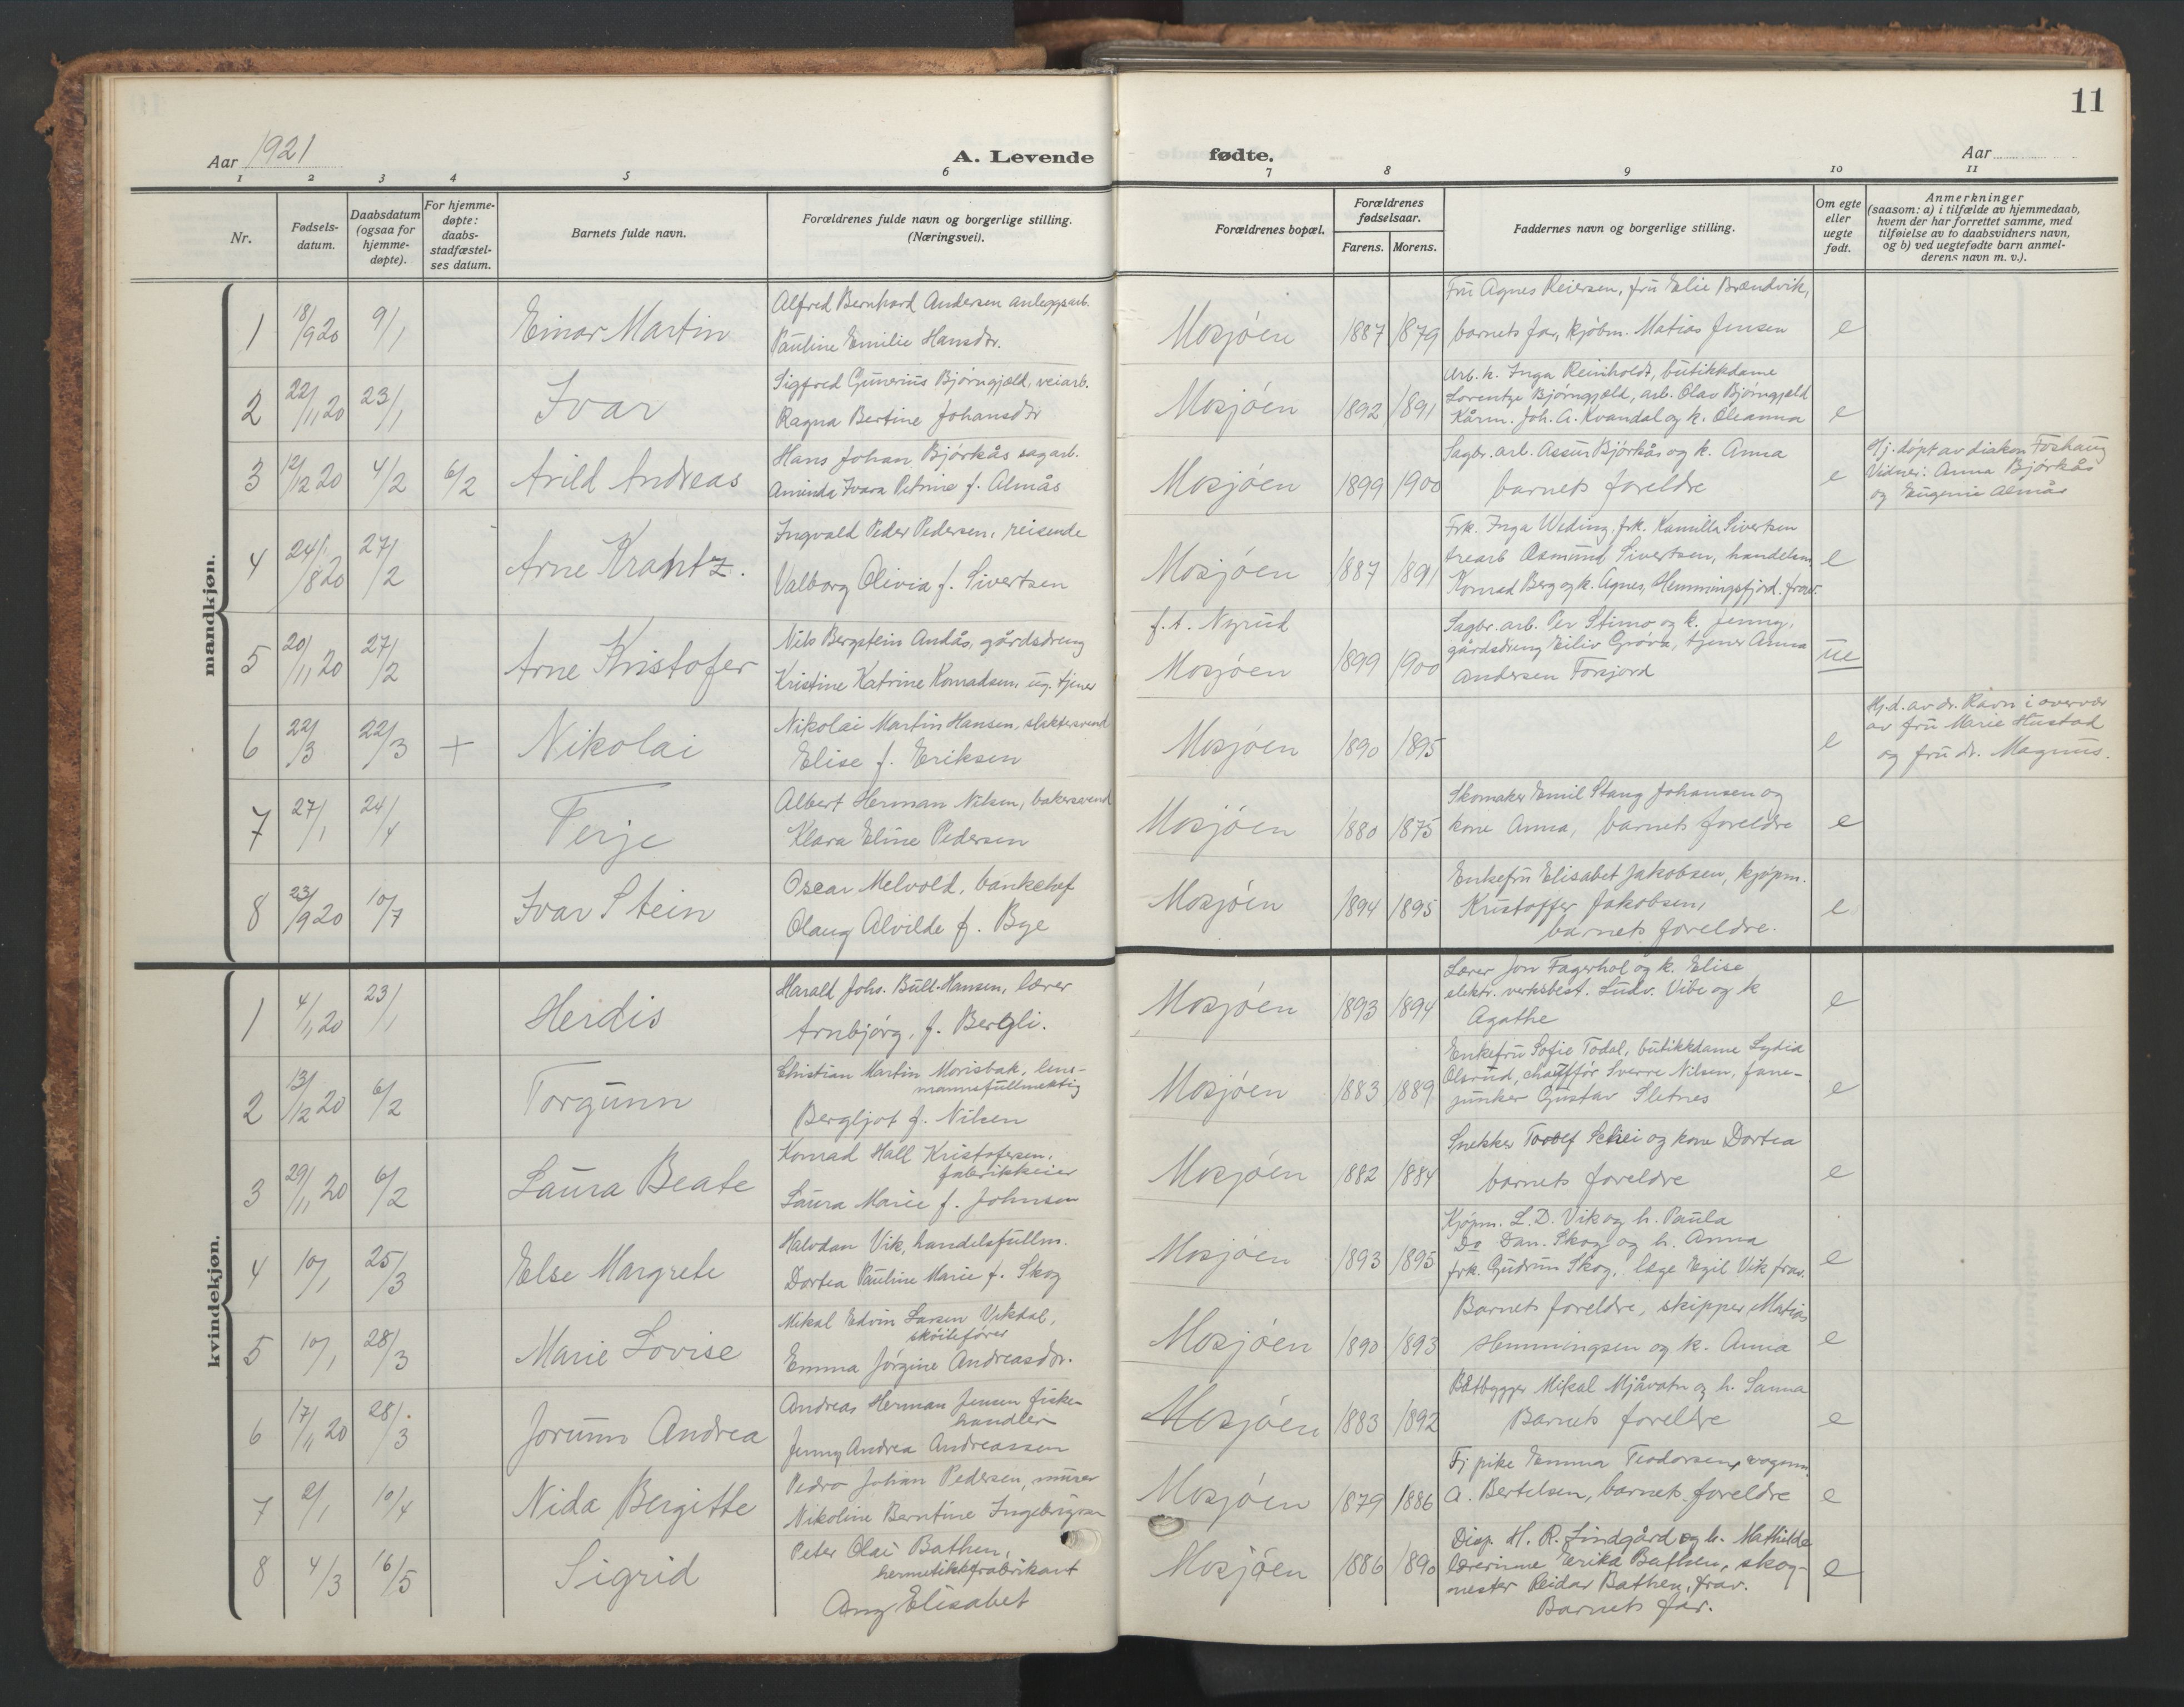 11
Aar 1921
A. Levende fødte.
Aar
1 2 3 4 5 6 7 8 9 10 11
Nr.
Fødsels-
datum.
Daabsdatum
(ogsaa for
hjemme-
døpte).
For hjemme-
døpte:
daabs-
stadfæstel-
ses datum.
Barnets fulde navn.
Forældrenes fulde navn og borgerlige stilling.
(Næringsvei).
Forældrenes bopæl.
Forældrenes
fødselsaar.
Farens. Morens.
Faddernes navn og borgerlige stilling.
Om egte
eller
uegte
født.
Anmerkninger
(saasom: a) i tilfælde av hjemmedaab,
hvem der har forrettet samme, med
tilføielse av to daabsvidners navn,
og b) ved uegtefødte barn anmel-
derens navn m. v.).
mandkjøn.
1 18/9 20 9/1 Einar Martin
Alfred Bernhard Andersen anleggsarb.
Pauline Emilie Hansdtr.
Mosjøen 1887 1879
Fru Agnes Reiersen, fru Elie Brændvik,
barnets far, kjøbm. Matias Jensen
e
2 22/11 20 23/1 Ivar
Sigfred Gunerius Bjørngjeld, veiarb.
Ragna Bertine Johansdtr
Mosjøen 1892 1891
Arb. k. Inga Reinholdt, butikkdame
Lorentze Bjørngjeld, arb. Olav Bjørngjeld
Kårm. Joh. A. Kvandal og k. Oleanna
e
3 12/12 20 4/2 6/2 Arild Andreas
Hans Johan Bjørkås sagarb.
Aminda Ivara Petrine f. Almås
Mosjøen 1899 1900
Sagbr. arb. Assur Bjørkås og k. Anna
barnets foreldre
e
Hj. døpt av diakon Foshaug
Vidner: Anna Bjørkås
og Eugenie Almås
4 24/8 20 27/2 Arne Krantz.
Ingvald Peder Pedersen, reisende
Valborg Olivia f. Sivertsen
Mosjøen 1887 1891
Frk. Inga Weding, frk. Kamilla Sivertsen
trearb Asmund Sivertsen, handelsm.
Konrad Berg og k. Agnes, Hemmingsfjord. frav.
e
5 20/11 20 27/2 Arne Kristofer
Nils Bergstein Andås, gårdsdreng
Kristine Katrine Konradsen, ug. tjener
f. t. Nyrud
Mosjøen 1899 1900
Sagbr. arb. Per Stimo og k. Jenny,
gårdsdreng Eiliv Grøva, tjener Anna
Andersen Forsjord
ue
6 22/3 22/3 + Nikolai
Nikolai Martin Hansen, slaktersvend
Elise f. Eriksen
Mosjøen 1890 1895
e
Hj. d. av dr. Ravn i overvær
av fru Marie Hustad
og fru dr. Magnus.
7 27/1 24/4 Terje
Albert Herman Nilsen, bakersvend
Klara Eline Pedersen
Mosjøen 1880 1875
Skomaker Emil Stang Johansen og
kone Anna, barnets foreldre
e
8 23/9 20 10/7 Ivar Stein
Oscar Melvold, bankchef
Olaug Alvilde f. Bye
Mosjøen 1894 1895
Enkefru Elisabet Jakobsen, kjøpm.
Kristoffer Jakobsen,
barnets foreldre.
e
kvindekjøn.
1 4/11 20 23/1 Herdis
Harald Johs. Bull-Hansen, lærer
Arnbjørg, f. Bergli.
Mosjøen 1893 1894
Lærer Jon Fagerhol og k. Elise
elektr. verksbest. Ludv. Vibe og k
Agathe
e
2 13/12 20 6/2 Torgunn
Christian Martin Morisbak, lens-
mannsfullmektig
Bergljot f. Nilsen
Mosjøen 1883 1889
Enkefru Sofie Todal, butikkdame Lydia
Olsrud, chauffør Sverre Nilsen, fane-
junker Gustav Sletnes
e
3 29/11 20 6/2 Laura Beate
Konrad Hall Kristofersen,
fabrikkeier
Laura Marie f. Johnsen
Mosjøen 1882 1884
Snekker Toolef Schei og kone Dortea
barnets foreldre
e
4 10/1 25/3 Else Margrete
Halvdan Vik, handelsfullm.
Dortea Pauline Marie f. Skog
Mosjøen 1893 1895
Kjøpm. L. D. Vik og h. Paula
Do Dan. Skog og h. Anna
frk. Gudrun Skog, læge Egil Vik frav.
e
5 10/1 28/3 Marie Lovise
Mikal Edvin Larsen Vikdal,
skøitefører
Emma Jørgine Andreasdtr.
Mosjøen 1890 1893
Barnets foreldre, skipper Matias
Hemmingsen og k. Anna
e
6 17/11 20 28/3 Jorunn Andrea
Andreas Herman Jensen fiske-
handler
Jenny Andrea Andreassen
Mosjøen 1883 1892
Båtbygger Mikal Mjåvatn og h. Sanna
Barnets foreldre
e
7 2/1 10/4 Nida Bergitte
Pedro Johan Pedersen, murer
Nikoline Berntine Ingebrigtsen
Mosjøen 1879 1886
Tj pike Emma Teodorsen, vognm.
A. Bertelsen, barnets foreldre
e
8 4/3 16/5 Sigrid
Peter Olai Bathen,
hermetikkfabrikant
Amy Elisabet
Mosjøen 1886 1890
Disp. H. R. Lindgård og h. Mathilde
lærerinne Erika Bathen, skog-
mester Reidar Bathen, frav.
Barnets far.
e